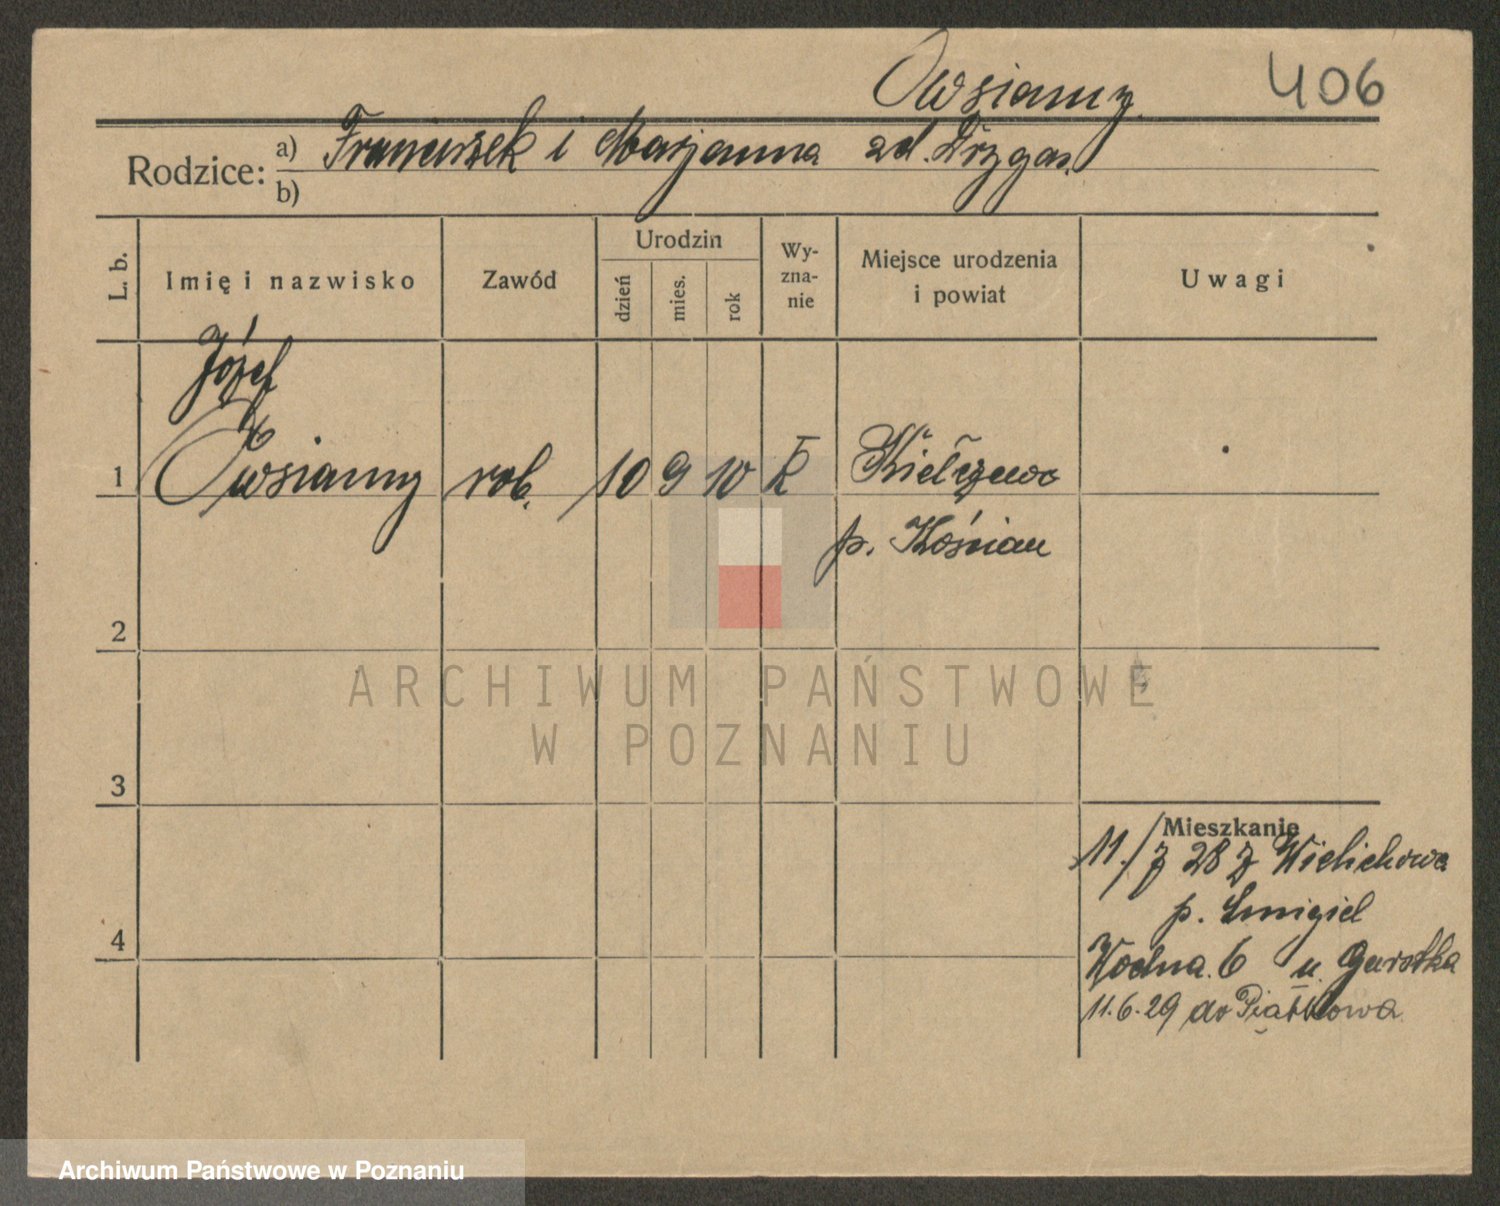 Owsianny
406
Rodzice: a) Franciszek i Marjanna zd. Drzygas.
b)
L. b.
Imię i nazwisko
Zawód
Urodzin
dzień
mies.
rok
Wy-
zna-
nie
Miejsce urodzenia
i powiat
Uwagi
Józef
1 Owsianny rob. 10 9 10 K Kiełczewo
p. Kościan
2
3
4
Mieszkanie
11./7 28 z Wielichowa
p. Śmigiel
Wodna 6 u Garstka
11.6.29 do Piątkowa
ARCHIWUM PAŃSTWOWE
W POZNANIU
Archiwum Państwowe w Poznaniu